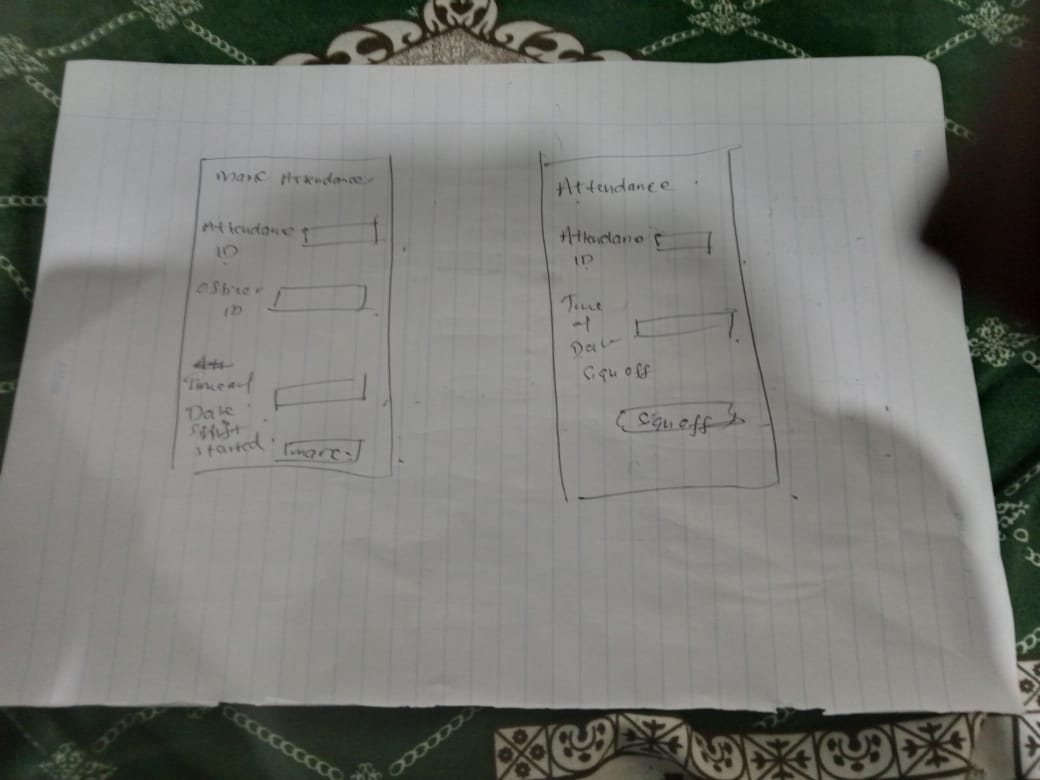 Mark Attendance
Attendance
ID
Officer
ID
Time and
Date
Shift
started
mark
Attendance
Attendance
ID
Time
of
Date
Sign off
Sign off